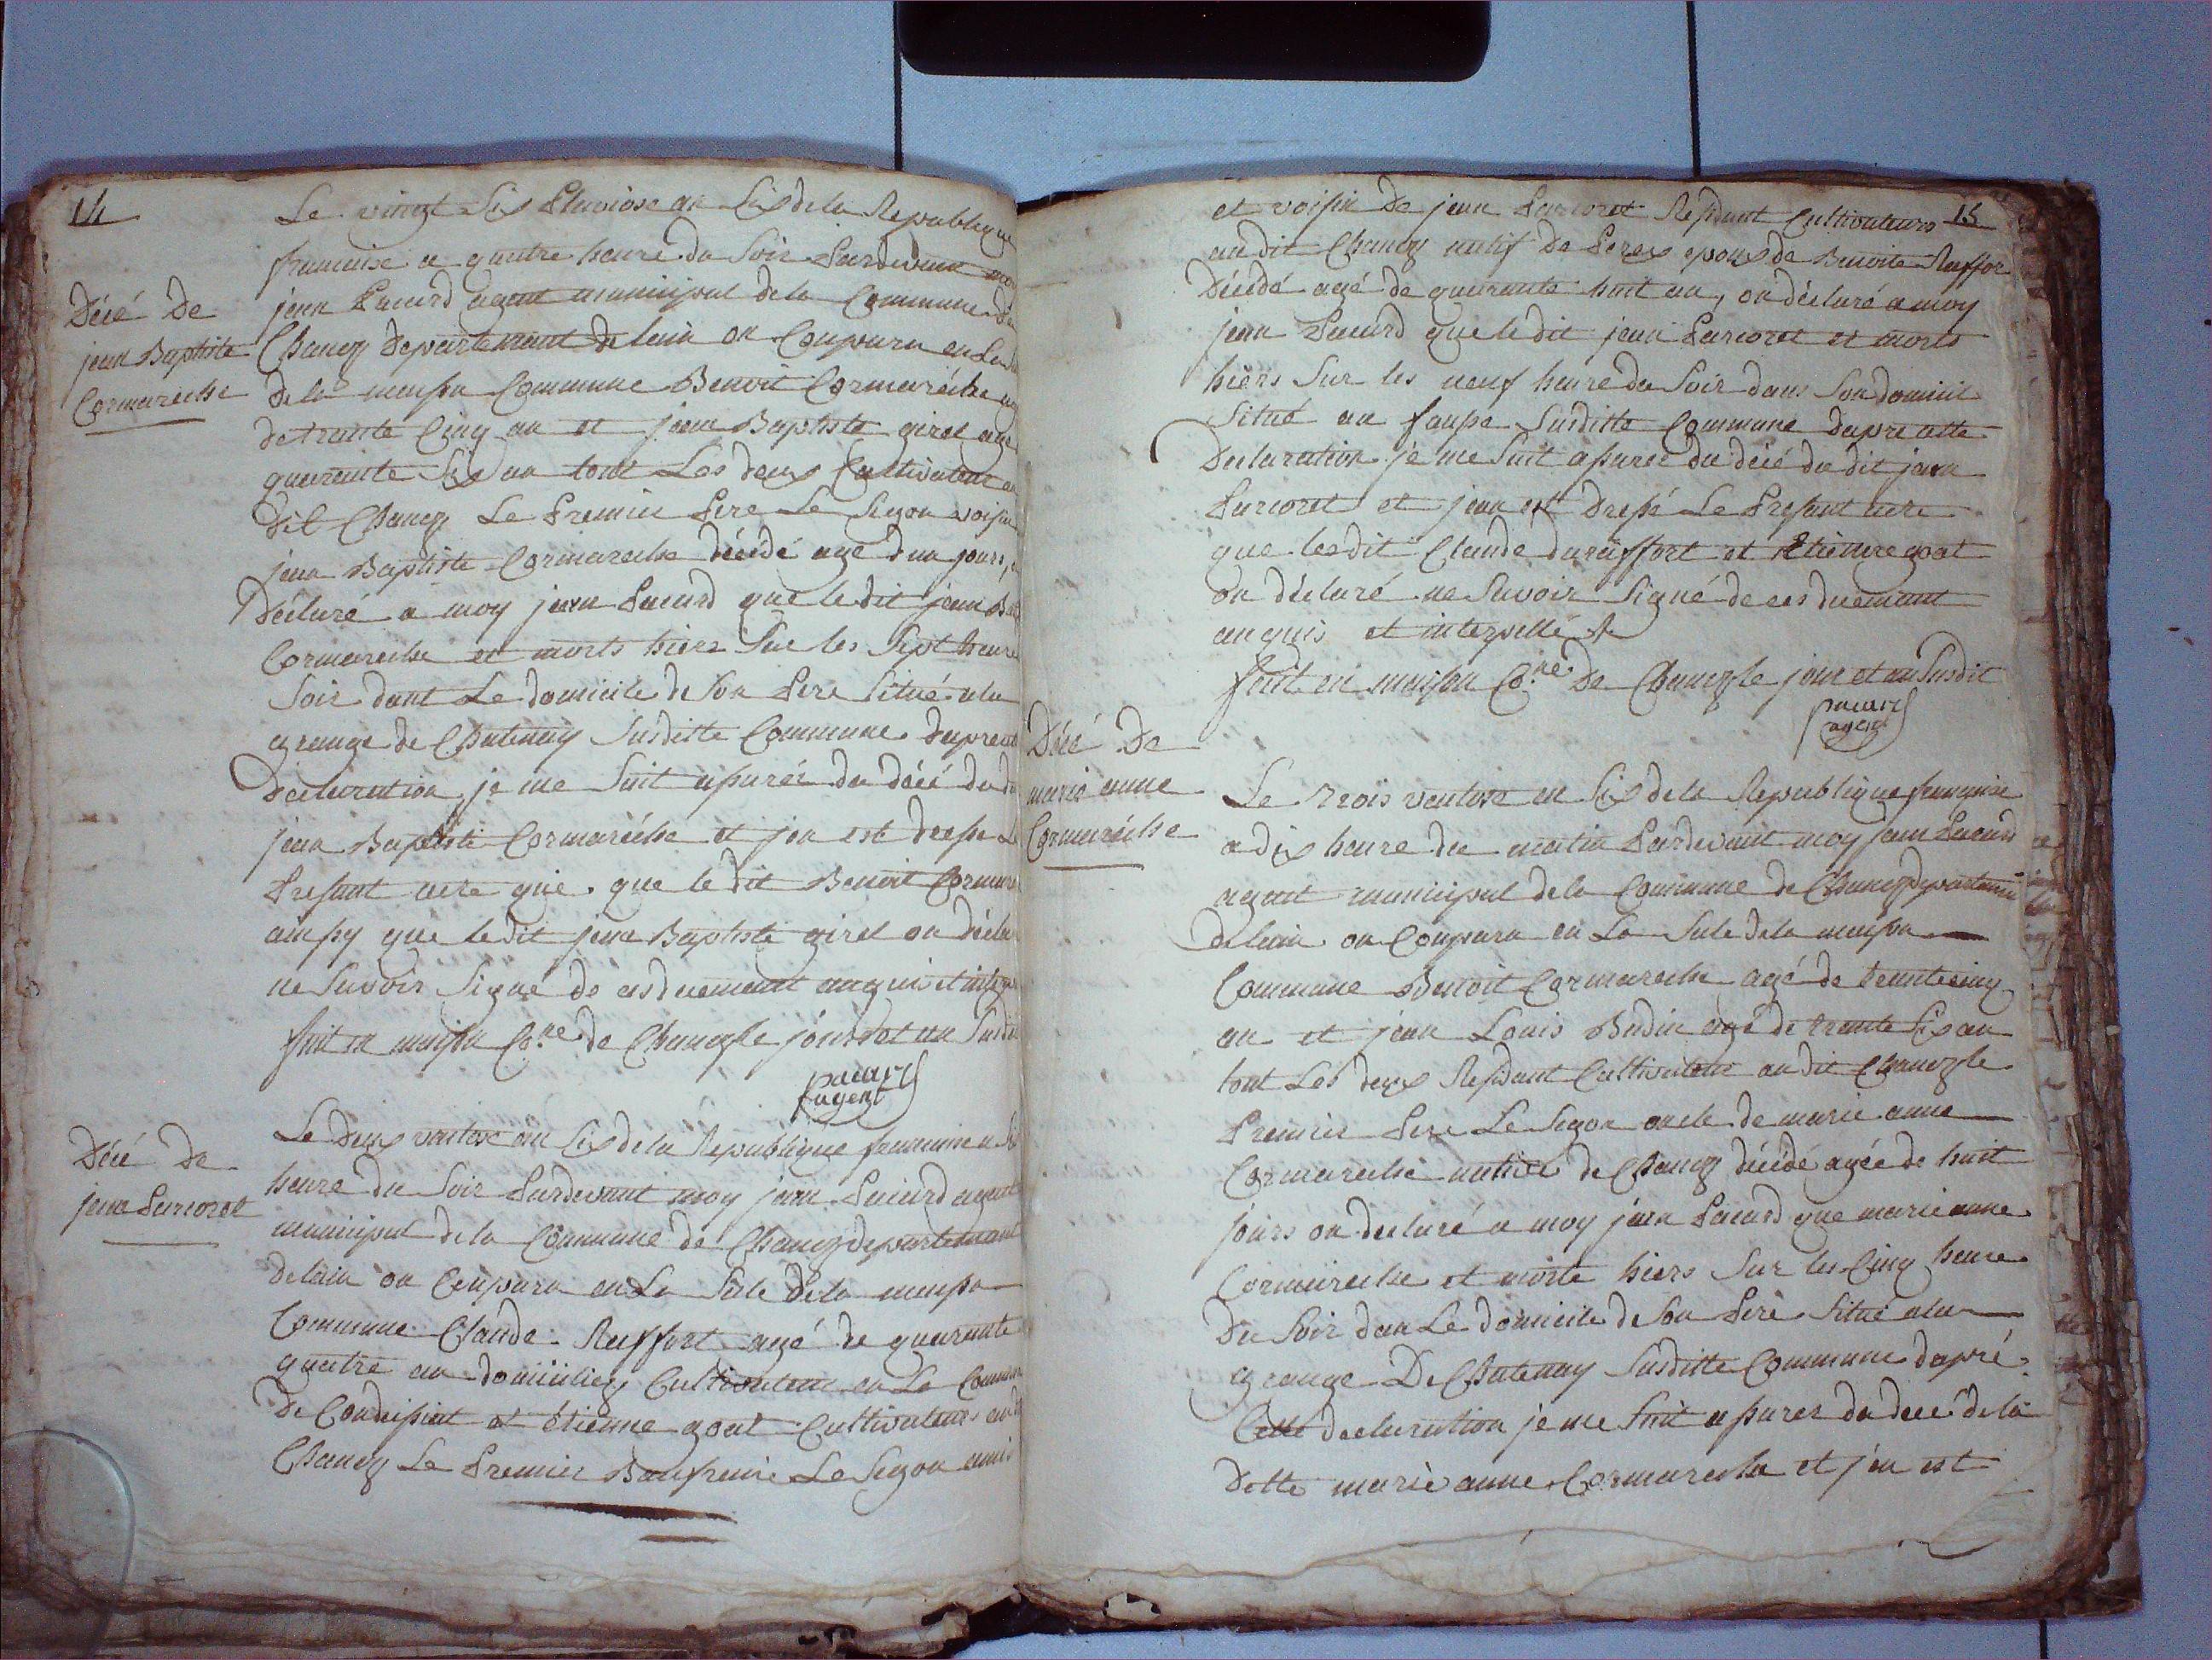 14
Le vingt Six Pluviose an Six de la Republique
francaise a quatre heure du Soir Pardevant moy
jean Pacard agent municipal dela Commune de
Chaney Departemant de lain on Conparu en La
dela meuson Commune Benoit Cormareche agé
de trante Cinq an et jean Baptiste girel agé
quarante Six an tout Les deux Cultivateur au
dit Chaney Le Premier Pere Le Segon voisin
jean Baptiste Cormareche décédé agé dun jours,
Décé De
jean Baptiste
Cormareche
Déclaré a moy jean Pacard que le dit jean Bat
Cormareche et morts hiere Sur les Sept heure
Soir dant Le domicile de Son Pere Situé ala
grange de Chatenay Susditte Commune dapre
Declaration, je me Suit asurér du décé du d
jean Baptiste Cormaréche et jen est dressé Le
Presant acte que. que le dit Benoit Cormare
ainsy que ledit jean Baptiste girel on décla
ne Savoir Signé de ces duemant anquis et intep
fait en maison Cne de Chaney le jours et an Susdi
pacard
agent
Décé De
jean Parcoret
Le Deux ventose an Six de la Republique francaise a Si
heure du Soir Pardevant moy jean Pacard agent
municipal dela Commune de Chaney departemant
delain on Conparu en La Sale dela meuson
Commune Claude Ruffort agé de quarante
quatre an domiciliez Cultivateur en La Commune
de Condeissiat et étienne goat Cultivateur au d
Chaney Le Premier Baufreire Le Segon ami
15
et voisin De jean Parcoret Resident Cultivateurs
au dit Chaney natif De Perex epoux de Benoite Ruffor
Décédé agé de quarante huit an, on déclaré a moy
jean Pacard que le dit jean Parcoret et morts
hiers Sur les neuf heure du Soir dans Son domicil
Situé au Susditte Commune dapre cette
Declaration je me Suit asurer du décé du dit jean
Parcoret et jean est Dressé Le Presant acte
que lesdit Claude duruffort et Etienne goat
on déclaré ne Savoir Signé de ces duemant
anquis et interpellé
fait en maison Cne De Chaney le jour et an Susdit
pacard
agent
Décé De
marie anne
Cormaréche
Le Trois ventose an Six de la Republique francaise
a dix heure du matin Pardevant moy jean Pacard
agent municipal dela Commune de Chaney departemen
delain on Conparu en La Sale dela meuson
Commune Benoit Cormareche agé de trante cinq
an et jean Louis Budin agé de trante Six an
tout Les deux Resident Cultivateur au dit Chaney le
Premier Pere Le Segon oncle de marie anne
Cormareche native de Chaney décédé agée de huit
jours on declaré a moy jean Pacard que marie anne
Cormareche et morte hiers Sur les Cinq heure
Du Soir dan Le domicile de Son Pere Situé ala
grange De Chatenay Susditte Commune dapré
Cette declaration je me Suit asurer du décé dela
ditte marie anne Cormareche et jén est